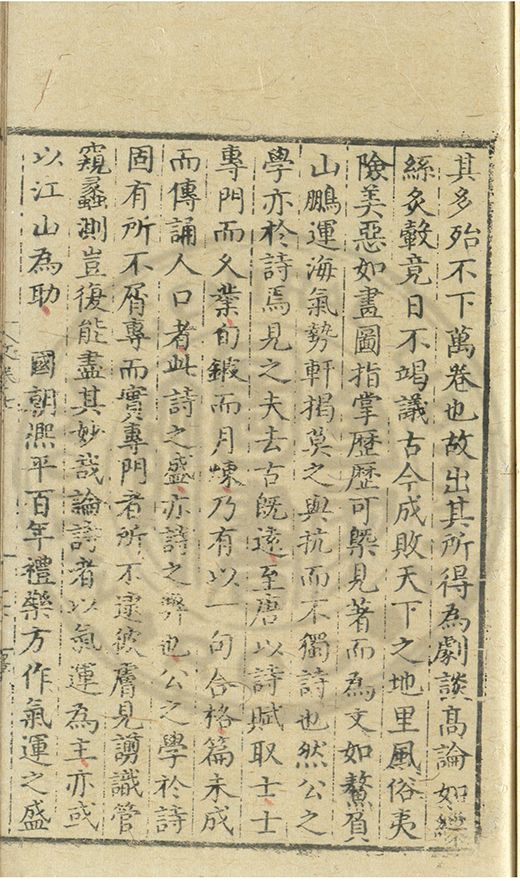 其多殆不下萬卷也故出其所得為劇談髙論如繅
絲炙轂竟日不竭議古今成敗天下之地里風俗夷
險美惡如畫圖指掌歷歷可槩見著而為文如鰲負
山鵬運海氣勢軒揭莫之與抗而不獨詩也然公之
學亦於詩焉見之夫去古旣遠至唐以詩賦取士士
專門而乆業旬鍜而月煉乃有以一句合格篇未成
而傳誦人口者此詩之盛亦詩之弊也公之學於詩
固有所不屑專而實專門者所不逮彼膚見謭識管
窺蠡測豈復能盡其妙哉論詩者以氣運為主亦或
以江山為助 國朝凞平百年禮樂方作氣運之盛